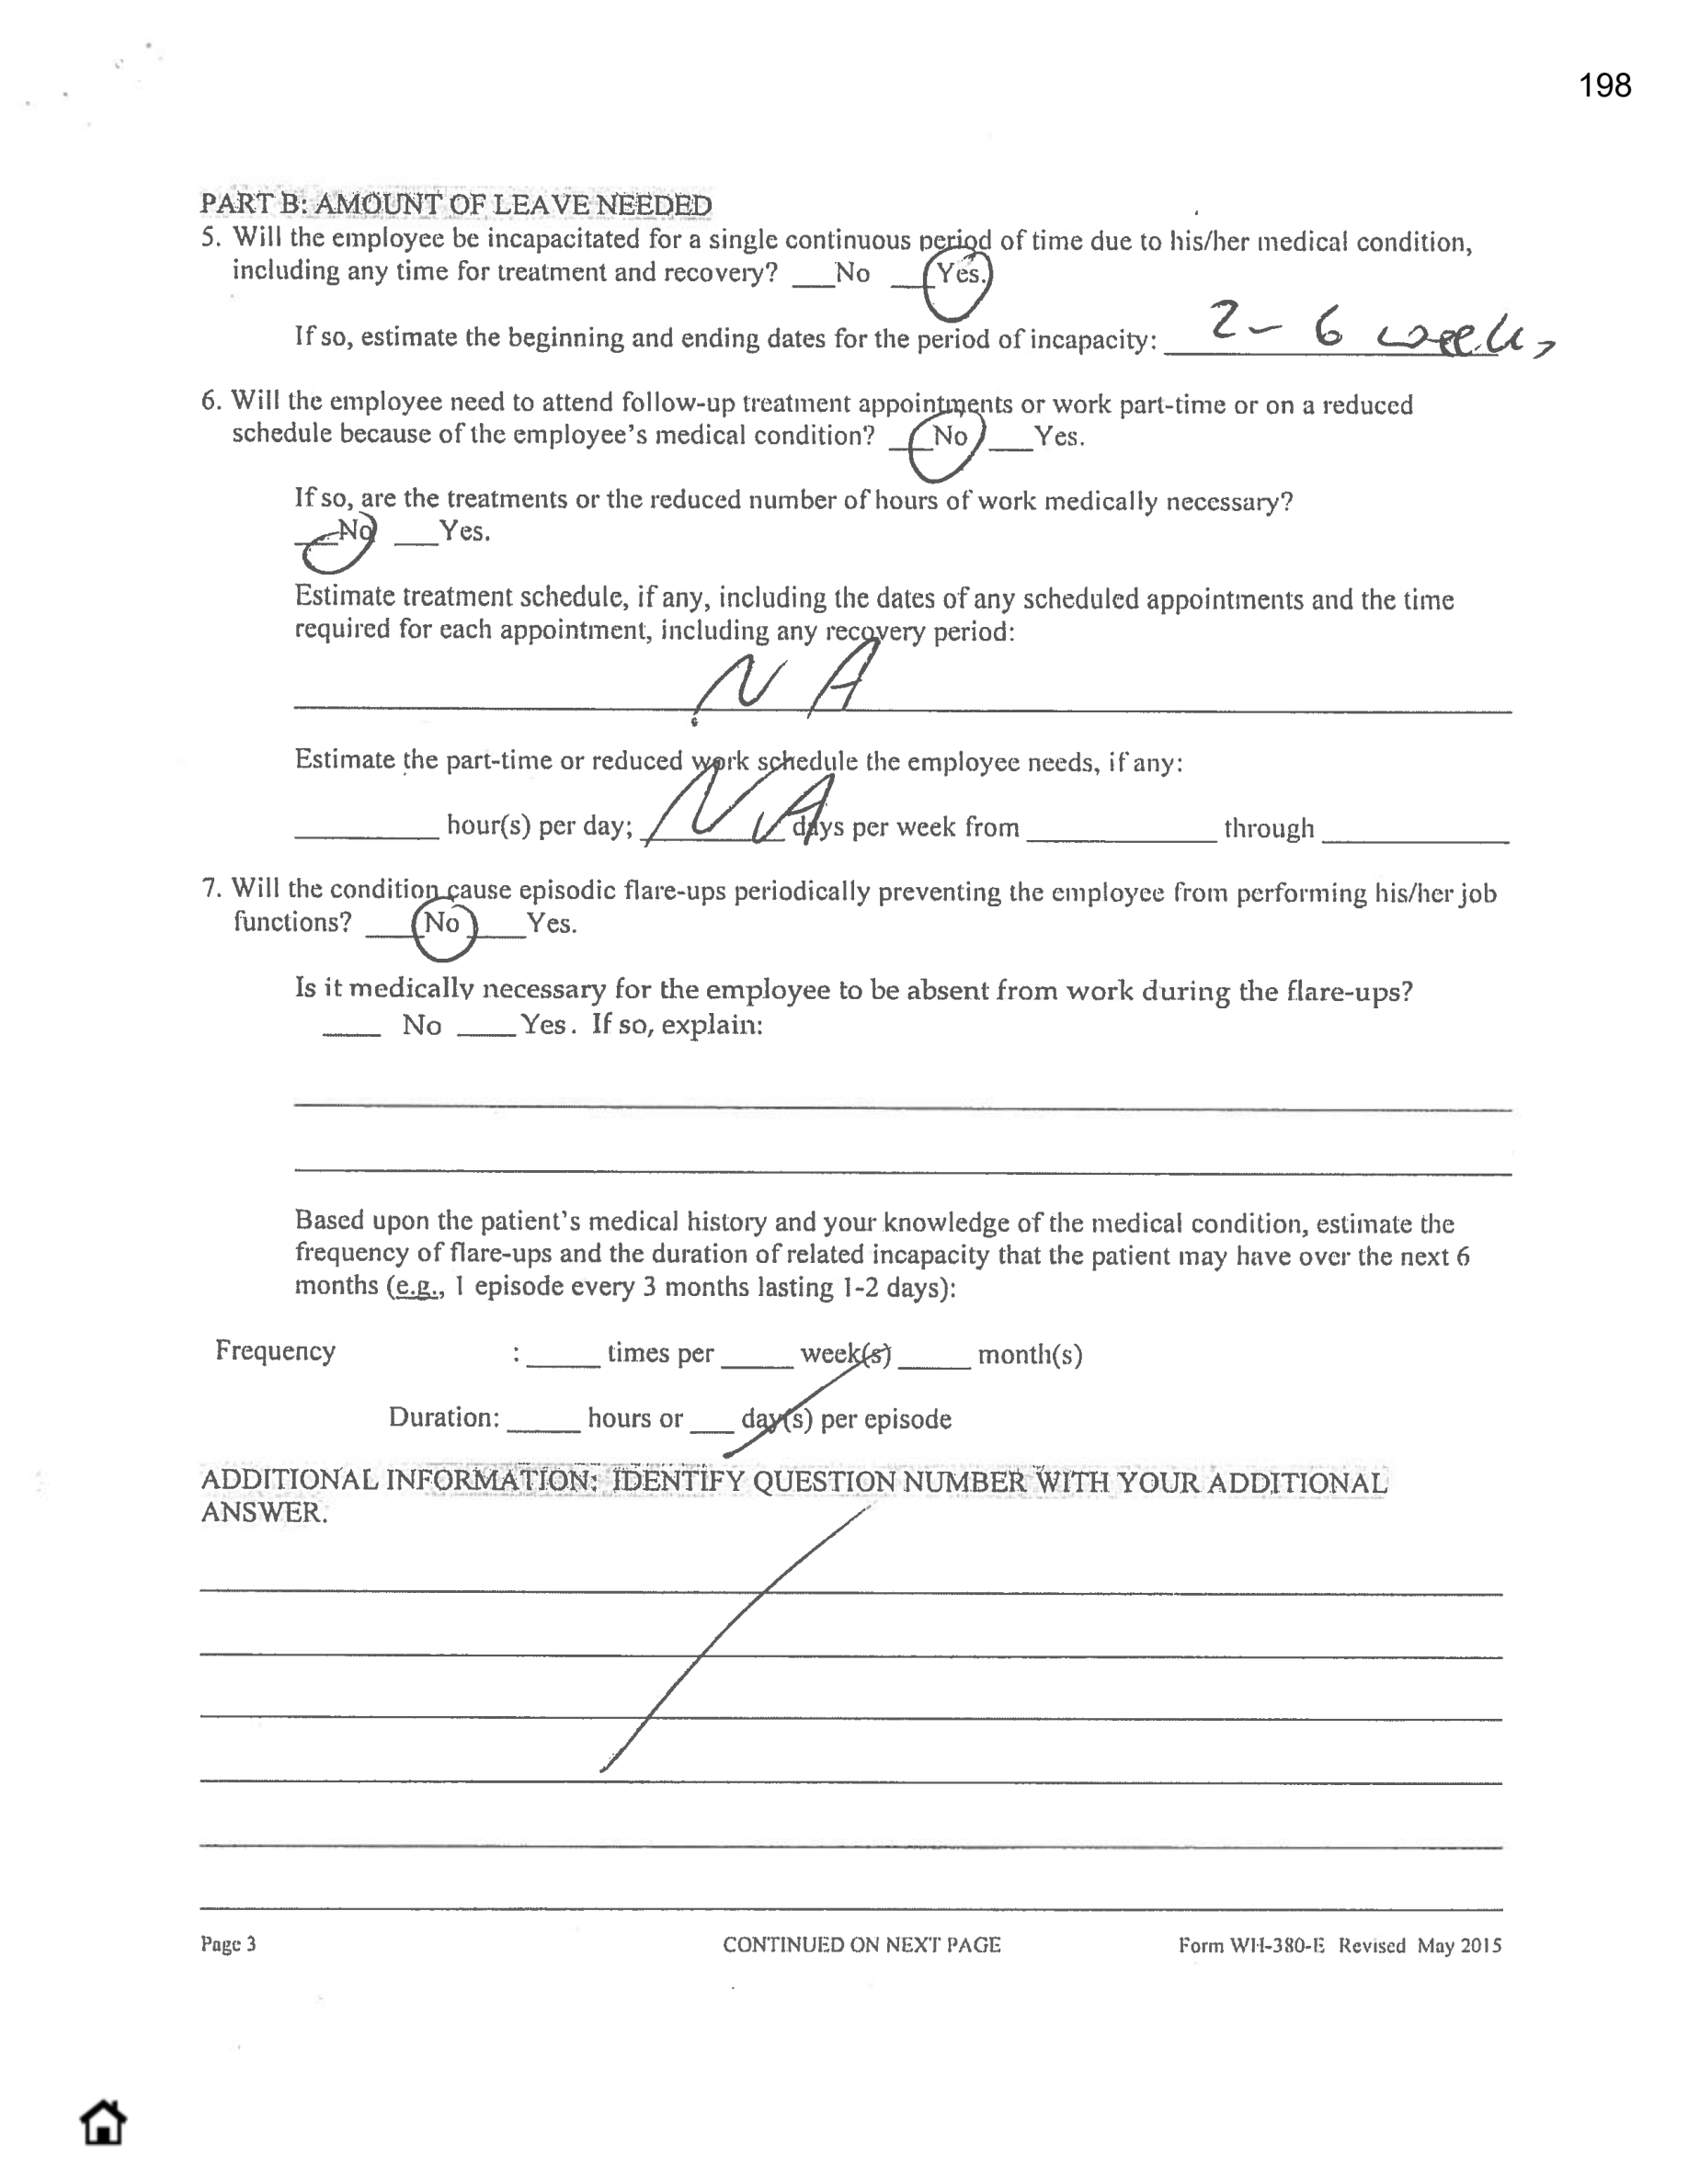 198
PART B: AMOUNT OF LEAVE NEEDED
5. Will the employee be incapacitated for a single continuous period of time due to his/her medical condition,
including any time for treatment and recovery? ___No ___Yes.
If so, estimate the beginning and ending dates for the period of incapacity: 2- 6 weeks
6. Will the employee need to attend follow-up treatment appointments or work part-time or on a reduced
schedule because of the employee's medical condition? ___No ___Yes.
If so, are the treatments or the reduced number of hours of work medically necessary?
___No ___Yes.
Estimate treatment schedule, if any, including the dates of any scheduled appointments and the time
required for each appointment, including any recovery period:
N A
Estimate the part-time or reduced work schedule the employee needs, if any:
_________ hour(s) per day; N A days per week from _________ through _________
7. Will the condition cause episodic flare-ups periodically preventing the employee from performing his/her job
functions? ____No ____Yes.
Is it medically necessary for the employee to be absent from work during the flare-ups?
____ No ____Yes. If so, explain:
Based upon the patient's medical history and your knowledge of the medical condition, estimate the
frequency of flare-ups and the duration of related incapacity that the patient may have over the next 6
months (e.g., 1 episode every 3 months lasting 1-2 days):
Frequency : _____ times per _____ week(s) _____ month(s)
Duration: _____ hours or ___ day(s) per episode
ADDITIONAL INFORMATION: IDENTIFY QUESTION NUMBER WITH YOUR ADDITIONAL
ANSWER.
Page 3 CONTINUED ON NEXT PAGE Form WH-380-E Revised May 2015